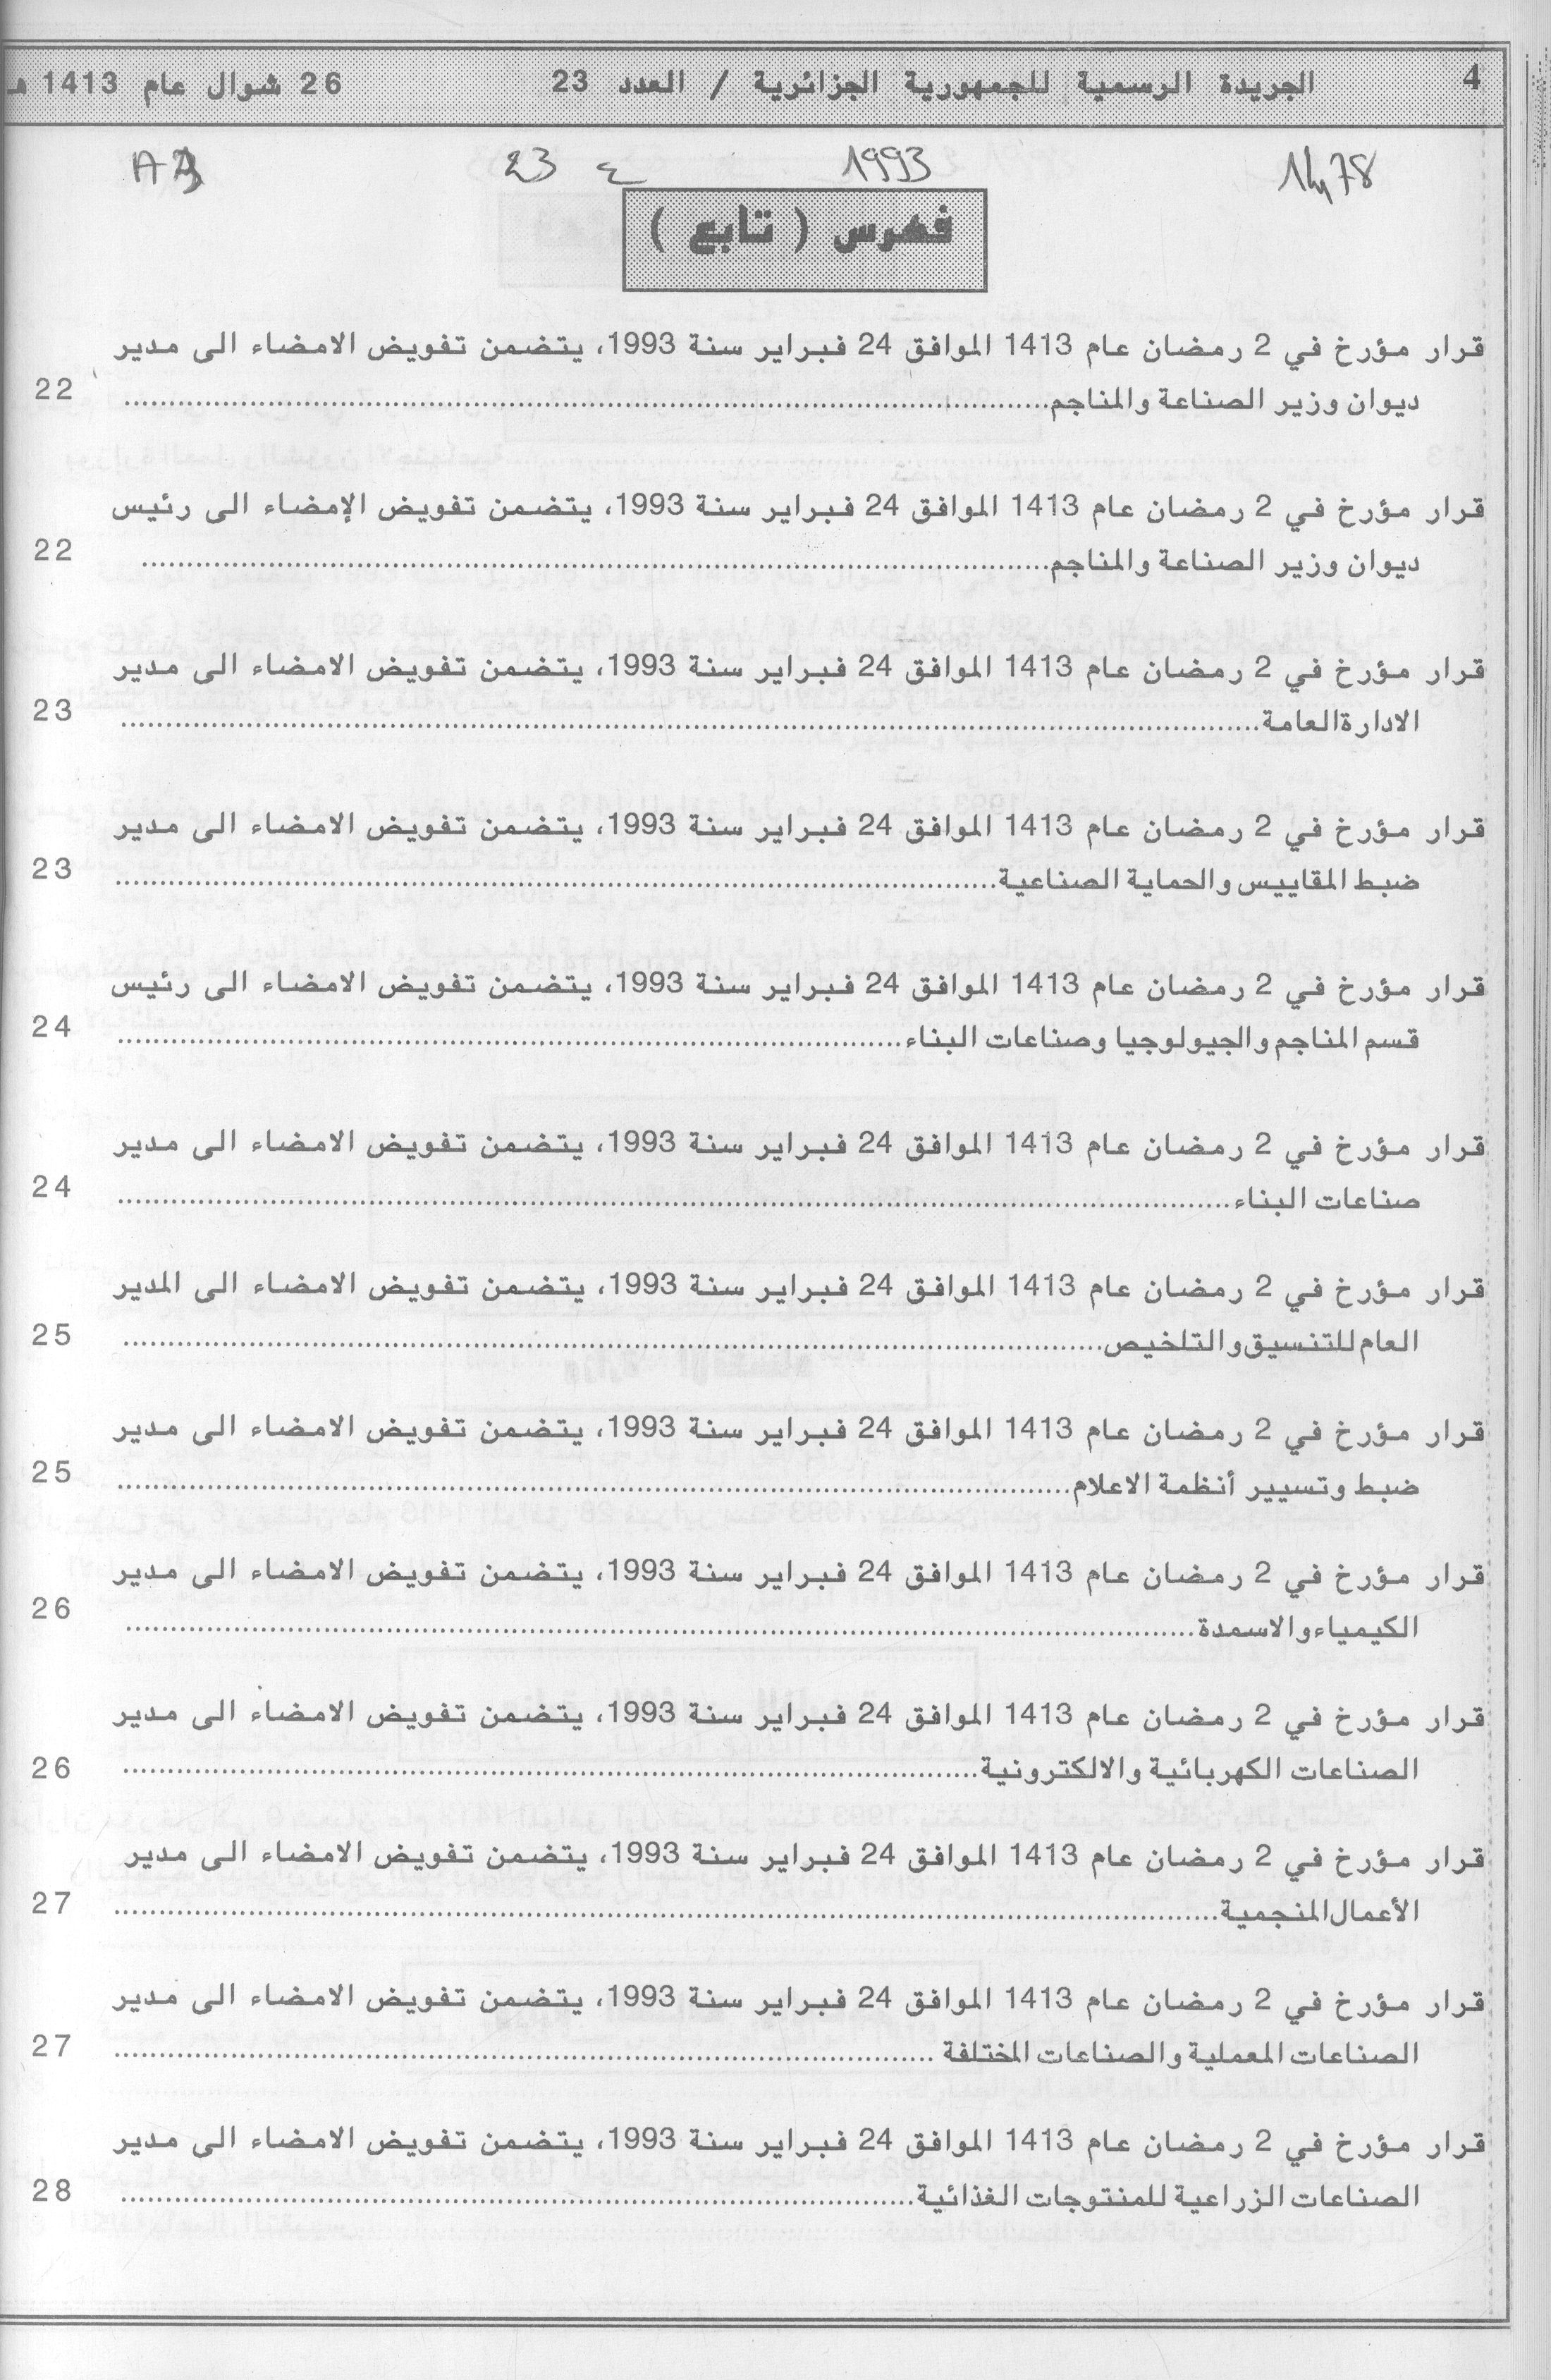 4 الجريدة الرسمية للجمهورية الجزائرية / العدد 23 26 شوال عام 1413 هـ
1993 ع 23
فهرس ( تابع )
قرار مؤرخ في 2 رمضان عام 1413 الموافق 24 فبراير سنة 1993، يتضمن تفويض الامضاء الى مدير
ديوان وزير الصناعة والمناجم 22
قرار مؤرخ في 2 رمضان عام 1413 الموافق 24 فبراير سنة 1993، يتضمن تفويض الإمضاء الى رئيس
ديوان وزير الصناعة والمناجم 22
قرار مؤرخ في 2 رمضان عام 1413 الموافق 24 فبراير سنة 1993، يتضمن تفويض الامضاء الى مدير
الادارة العامة 23
قرار مؤرخ في 2 رمضان عام 1413 الموافق 24 فبراير سنة 1993، يتضمن تفويض الامضاء الى مدير
ضبط المقاييس والحماية الصناعية 23
قرار مؤرخ في 2 رمضان عام 1413 الموافق 24 فبراير سنة 1993، يتضمن تفويض الامضاء الى رئيس
قسم المناجم والجيولوجيا وصناعات البناء 24
قرار مؤرخ في 2 رمضان عام 1413 الموافق 24 فبراير سنة 1993، يتضمن تفويض الامضاء الى مدير
صناعات البناء 24
قرار مؤرخ في 2 رمضان عام 1413 الموافق 24 فبراير سنة 1993، يتضمن تفويض الامضاء الى المدير
العام للتنسيق والتلخيص 25
قرار مؤرخ في 2 رمضان عام 1413 الموافق 24 فبراير سنة 1993، يتضمن تفويض الامضاء الى مدير
ضبط وتسيير أنظمة الاعلام 25
قرار مؤرخ في 2 رمضان عام 1413 الموافق 24 فبراير سنة 1993، يتضمن تفويض الامضاء الى مدير
الكيمياء والاسمدة 26
قرار مؤرخ في 2 رمضان عام 1413 الموافق 24 فبراير سنة 1993، يتضمن تفويض الامضاء الى مدير
الصناعات الكهربائية والالكترونية 26
قرار مؤرخ في 2 رمضان عام 1413 الموافق 24 فبراير سنة 1993، يتضمن تفويض الامضاء الى مدير
الأعمال المنجمية 27
قرار مؤرخ في 2 رمضان عام 1413 الموافق 24 فبراير سنة 1993، يتضمن تفويض الامضاء الى مدير
الصناعات المعملية والصناعات المختلفة 27
قرار مؤرخ في 2 رمضان عام 1413 الموافق 24 فبراير سنة 1993، يتضمن تفويض الامضاء الى مدير
الصناعات الزراعية للمنتوجات الغذائية 28